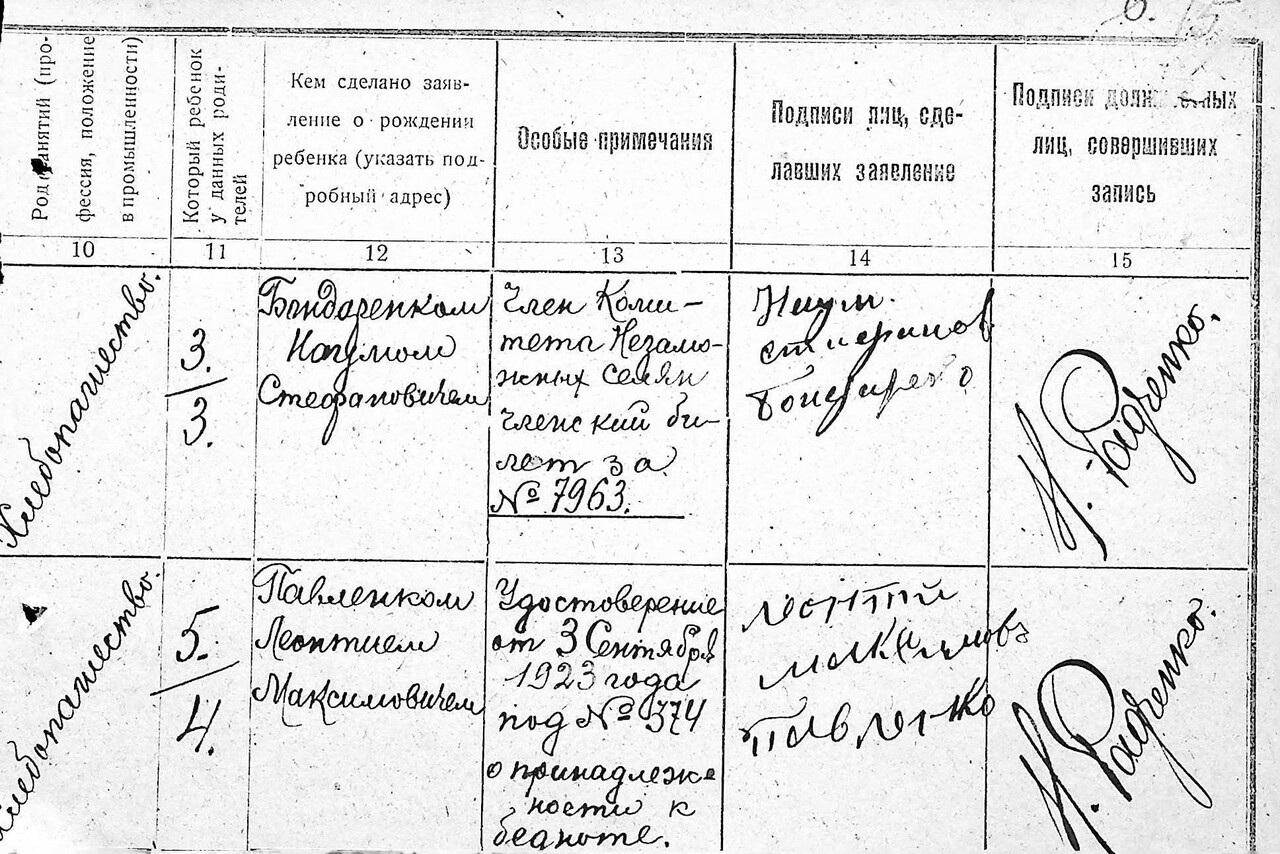 Род занятий (про-
фессия, положение
в промышленности)
Который ребенок
у данных роди-
телей
Кем сделано заяв-
ление о рождении
ребенка (указать под-
робный адрес)
Особые примечания
Подписи лиц, сде-
лавших заявление
Подписи должностных
лиц, совершивших
запись
10
11
12
13
14
15
Хлебопашество.
3.
3.
Бондаренком
Наумом
Стефановичем
Член Коми-
тета Незамо-
жных Селян
членский би-
лет за
№ 7963.
Наум
стифанов
Бондаренко
Н. Радченко.
Хлебопашество.
5.
4.
Павленком
Леонтием
Максимовичем
Удостоверение
от 3 Сентября
1923 года
под № 374
о принадлежн
ности к
бедноте.
леонтий
макимовъ
павленко
Н. Радченко.